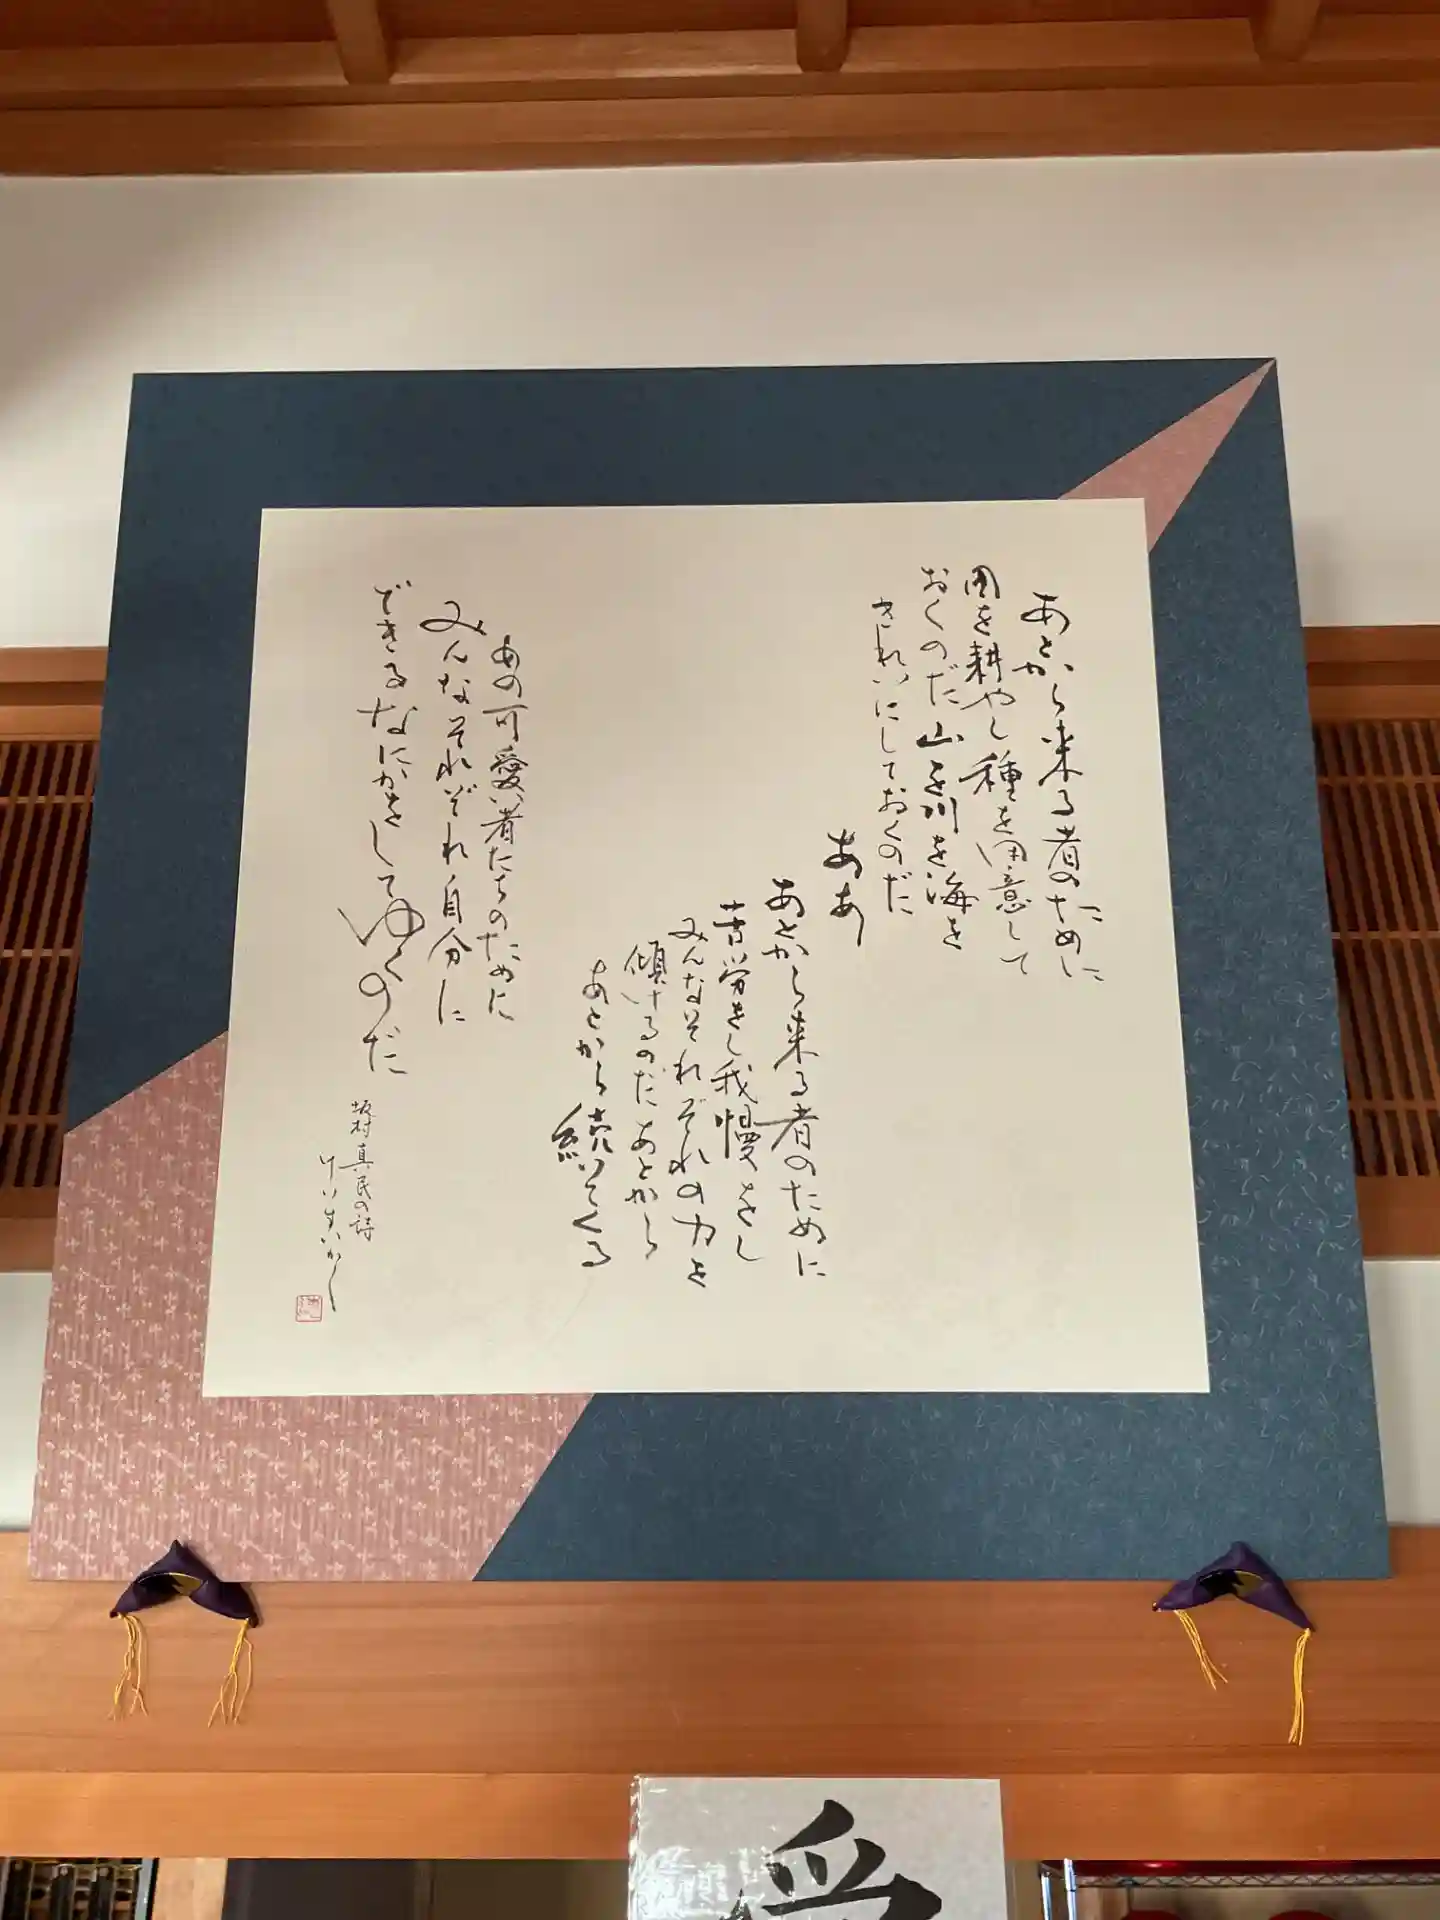 あとから来る者のために
田を耕やし種を用意して
おくのだ山を川を海を
きれいにしておくのだ
ああ
あとから来る者のために
苦労をし我慢をし
みんなそれぞれの力を
傾けるのだあとから
あとから続いてくる
あの可愛い者たちのために
みんなそれぞれ自分に
できるなにかをしてゆくのだ
坂村真民の詩